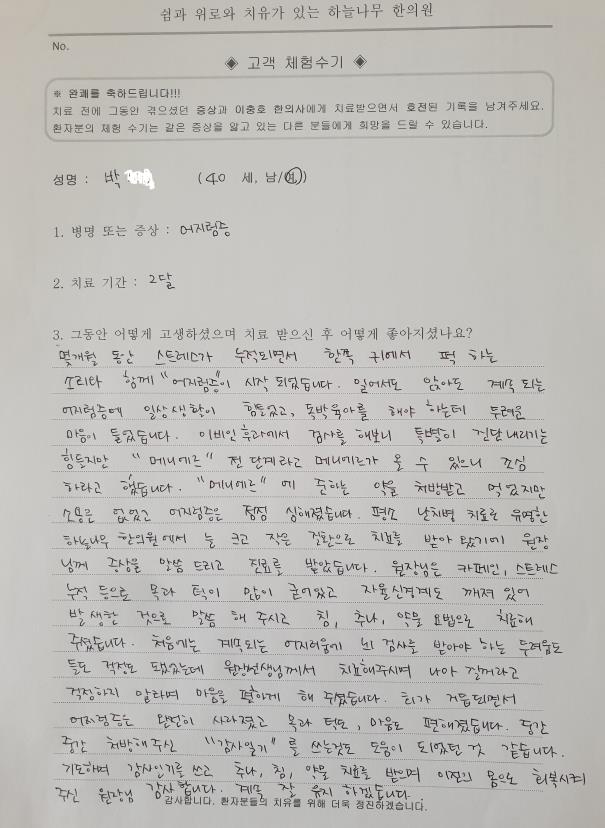 쉼과 위로와 치유가 있는 하늘나무 한의원
No.
◈ 고객 체험수기 ◈
※ 완쾌를 축하드립니다!!!
치료 전에 그동안 겪으셨던 증상과 이충호 한의사에게 치료받으면서 호전된 기록을 남겨주세요.
환자분의 체험 수기는 같은 증상을 앓고 있는 다른 분들에게 희망을 드릴 수 있습니다.
성명 : 박 (40 세, 남/여)
1. 병명 또는 증상 : 어지럼증
2. 치료 기간 : 2달
3. 그동안 어떻게 고생하셨으며 치료 받으신 후 어떻게 좋아지셨나요?
몇개월 동안 스트레스가 누적되면서 한쪽 귀에서 퍽 하는
소리와 함께 "어지럼증"이 시작 되었습니다. 일어서도 앉아도 계속 되는
어지럼증에 일상생활이 힘들었고, 독박육아를 해야 하는데 두려운
마음이 들었습니다. 이비인후과에서 검사를 해보니 특별히 진단내리기는
힘들지만 "메니에르" 전 단계라고 메니에르가 올 수 있으니 조심
하라고 했습니다. "메니에르"에 준하는 약을 처방받고 먹었지만
소용은 없었고 어지럼증은 점점 심해졌습니다. 평소 난치병 치료로 유명한
하늘나무 한의원에서 늘 크고 작은 질환으로 치료를 받아 왔기에 원장
님께 증상을 말씀 드리고 진료를 받았습니다. 원장님은 카페인, 스트레스
누적 등으로 목과 턱이 많이 굳어있고 자율신경계도 깨져 있어
발생한 것으로 말씀 해 주시고 침, 추나, 약물 요법으로 치료해
주셨습니다. 처음에는 계속되는 어지러움에 뇌 검사를 받아야 하는 두려움도
들고 걱정도 됐었는데 원장선생님께서 치료해주시며 나아 질꺼라고
걱정하지 말라며 마음을 편하게 해 주셨습니다. 치료가 거듭되면서
어지럼증은 완전히 사라졌고 목과 턱도, 마음도 편해졌습니다. 중간
중간 처방해주신 "감사일기"를 쓰는것도 도움이 되었던 것 같습니다.
기도하며 감사일기를 쓰고 추나, 침, 약물 치료를 받으며 이전의 몸으로 회복시켜
주신 원장님 감사합니다. 계속 잘 유지 하겠습니다.
감사합니다. 환자분들의 치유를 위해 더욱 정진하겠습니다.